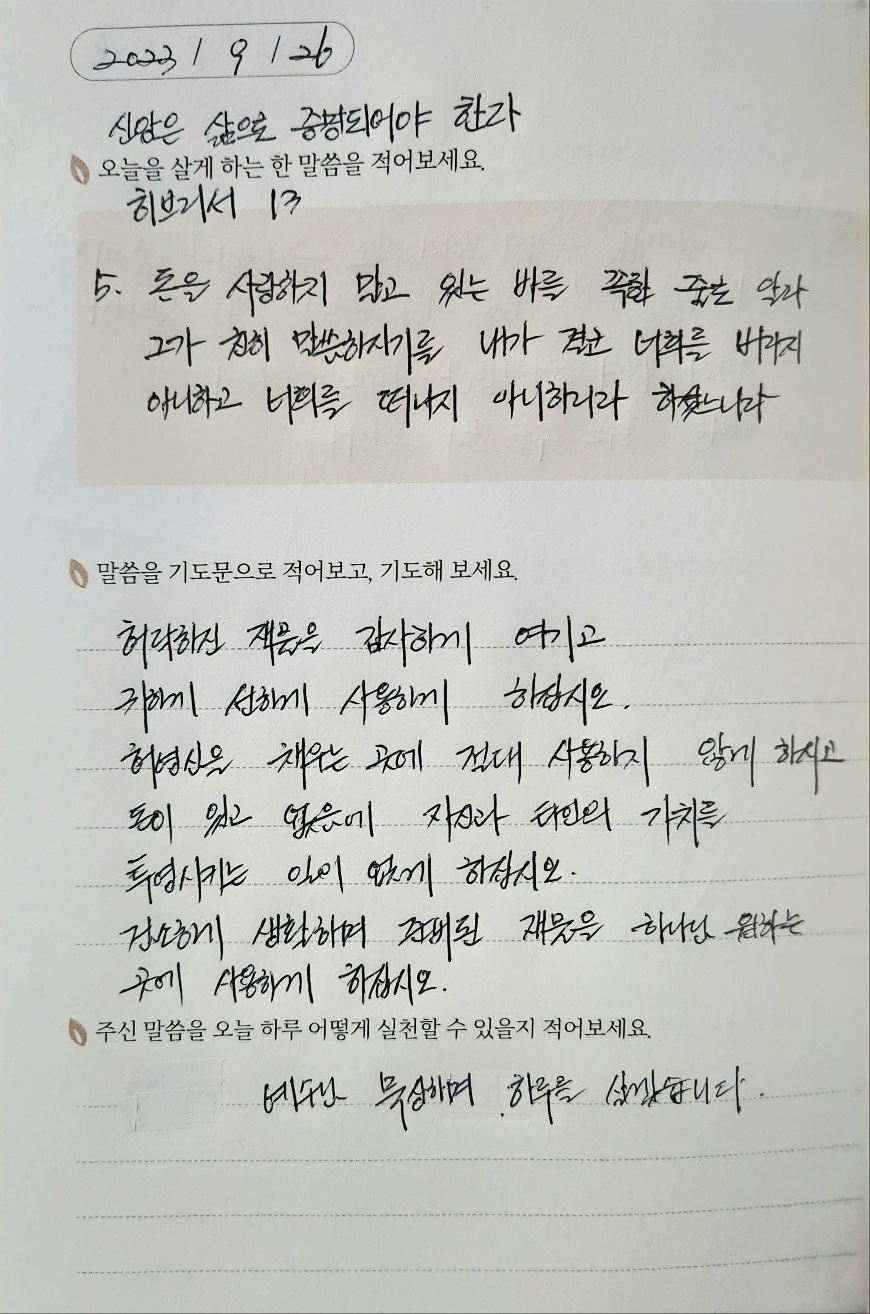 2023 / 9 / 26
신앙은 삶으로 증명되어야 한다
오늘을 살게 하는 한 말씀을 적어보세요.
히브리서 13
5. 돈을 사랑하지 말고 있는 바를 족한 줄로 알라
그가 친히 말씀하시기를 내가 결코 너희를 버리지
아니하고 너희를 떠나지 아니하리라 하셨느니라
말씀을 기도문으로 적어보고, 기도해 보세요.
허락하신 재물을 감사하게 여기고
귀하게 선하게 사용하게 하십시오.
허영심을 채우는 곳에 절대 사용하지 않게 하시고
돈이 있고 없음에 자신과 타인의 가치를
투영시키는 일이 없게 하십시오.
검소하게 생활하며 준비된 재물을 하나님 원하는
곳에 사용하게 하십시오.
주신 말씀을 오늘 하루 어떻게 실천할 수 있을지 적어보세요.
예수님 묵상하며 하루를 살겠습니다.